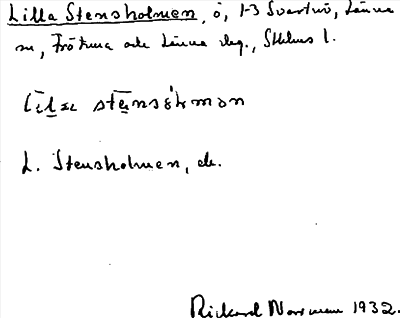 Lilla Stensholmen, ö, 1-3 Svartsö, Länna
sn, Frötuna och Länna slg., Sthlms l.
L. Stensholmen, ds.
Rickard Norrman 1932.